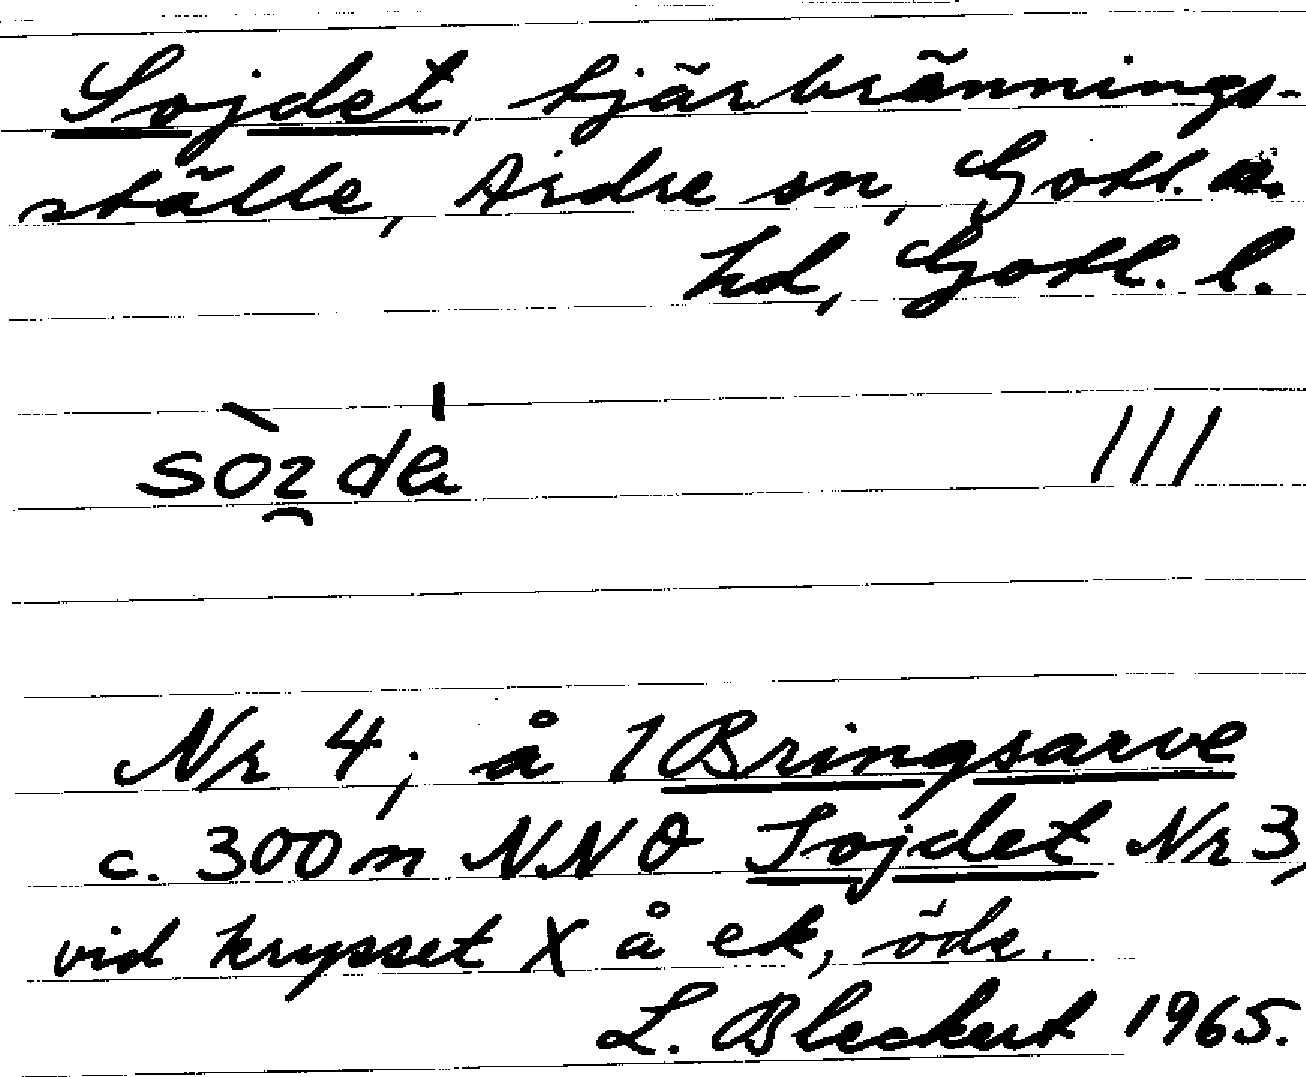 Sojdet, tjärbrännings-
ställe, Ardre sn, Gotl. s.
hd, Gotl. l.
III
Nr 4; å 1 Bringsarve
c. 300 m NNO Sojdet Nr 3,
vid krysset X å ek, öde.
L. Bleckert 1965.